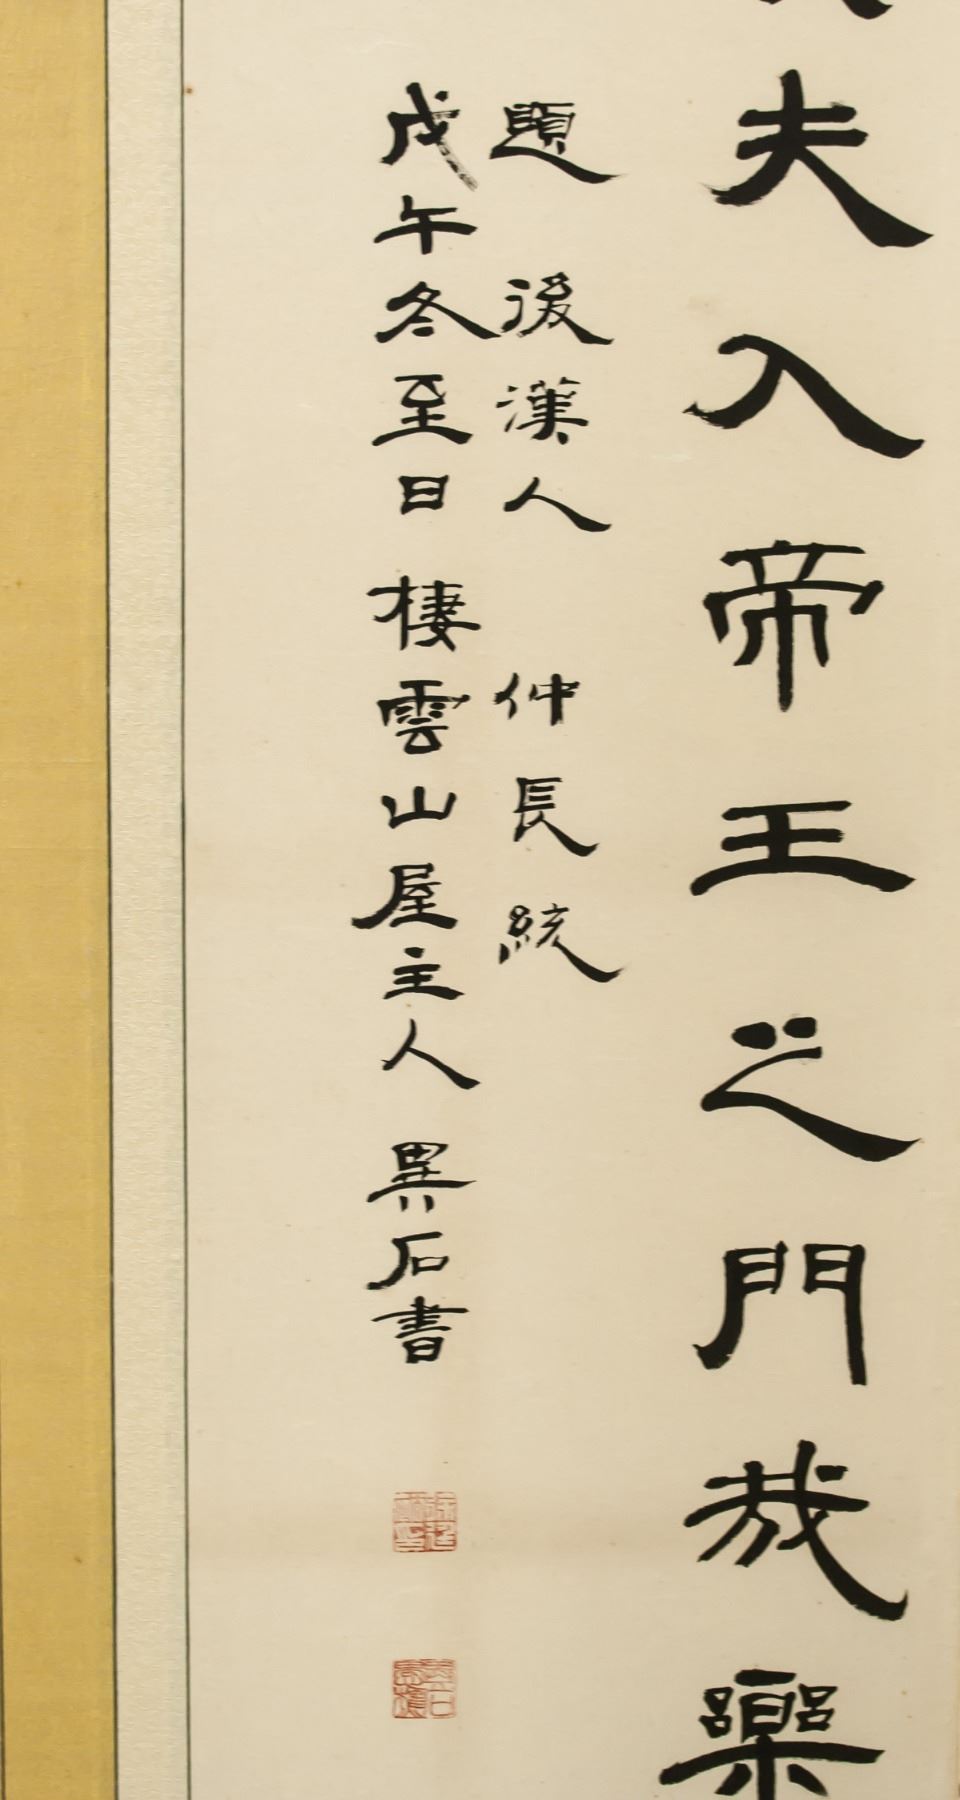 夫入帝王之門哉
題 後漢人 仲長統
戊午冬至日 棲雲山屋主人 異石書